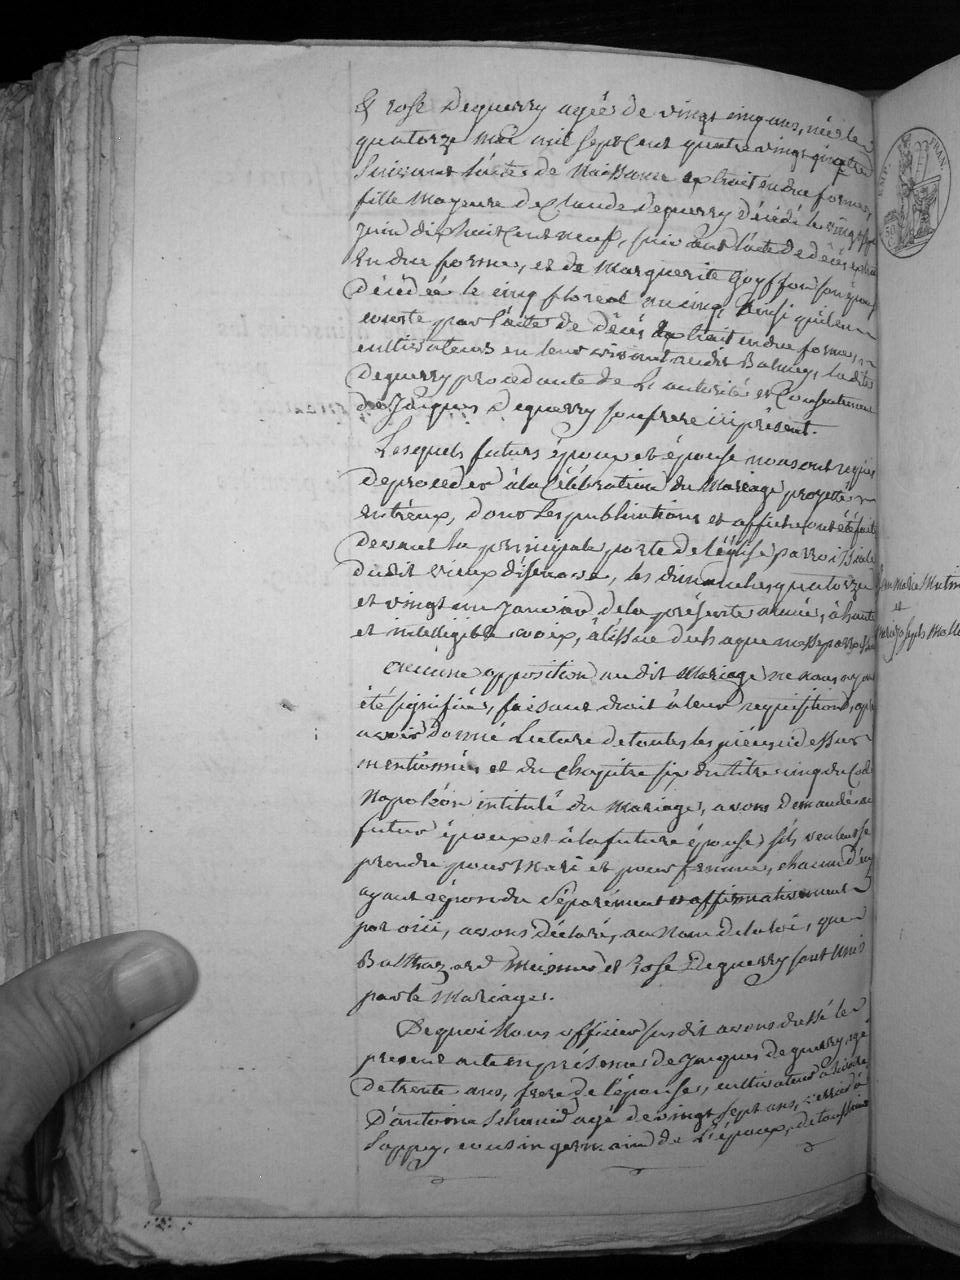 Et rose Deguerry agée de vingt cinq ans, née le
quatorze mai mil sept Cent quatre vingt quatre
Suivant l'acte de Naissance extrait en due forme,
fille Mayeure de Claude Deguerry Décédé le vingt
juin dix huit Cent neuf, suivant l'acte de décès extrait
En due forme, et de Marguerite Goyffon son épouse
Décédée le cinq floreal an cinq, Ainsi qu'il en
conste par l'acte de décès Extrait en due forme,
cultivateurs en leur vivant audit Balmey, la dite
Deguerry procedante de L'autorité et Consentement
de Jacques Deguerry son frere ici présent.
Lesquels futurs époux et épouse nous ont requis
de proceder à la Célébration du Mariage projetté
entr'eux, dont les publications et affiche ont été faite
devant la principale porte de l'église parroissiale
dudit vieux d'isenave, les dimanches quatorze
et vingt un Janvier de la présente année, à haute
et intelligible voix, à l'issue de chaque messe
aucune opposition audit Mariage ne nous ayant
été signifiée, faisant droit à leur requisition, après
avoir Donné Lecture de toutes les pièces ci dessus
mentionnées et du Chapitre six du titre cinq du Code
Napoléon intitulé du Mariage, avons demandé au
futur époux et à la future épouse s'ils veulent se
prendre pour Mari et pour femme, chacun d'eux
ayant répondu Séparément et affirmativement
par oüi, avons déclaré, au Nom de la loi, que
Balthazard et Rose Deguerry sont Unis
par le Mariage.
De quoi Nous officier susdit avons dressé le
présent acte en présence de Jacques Deguerry, agé
de trente ans, frere de l'épouse, cultivateur
D'antoine agé de vingt sept ans,
Lappey, cousin germain de L'époux, de
Marie
et